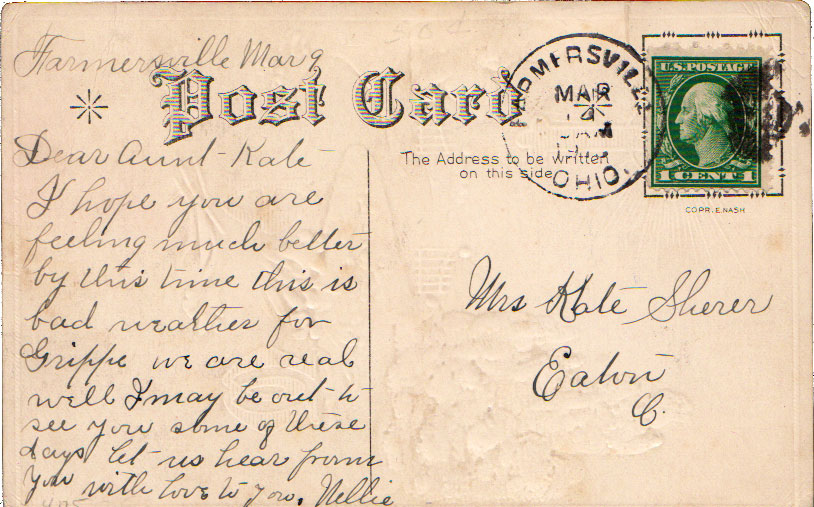 Farmersville Mar 9
Post Card
Dear Aunt Kate
I hope you are
feeling much better
by this time this is
bad weather for
Grippe we are real
well I may be out to
see you some of these
days let us hear from
you with love to you. Nellie
FARMERSVILLE
MAR
AM
OHIO.
U.S. POSTAGE
1 CENTS 1
COPR. E. NASH
The Address to be written
on this side
Mrs Kate Sherer
Eaton
O.